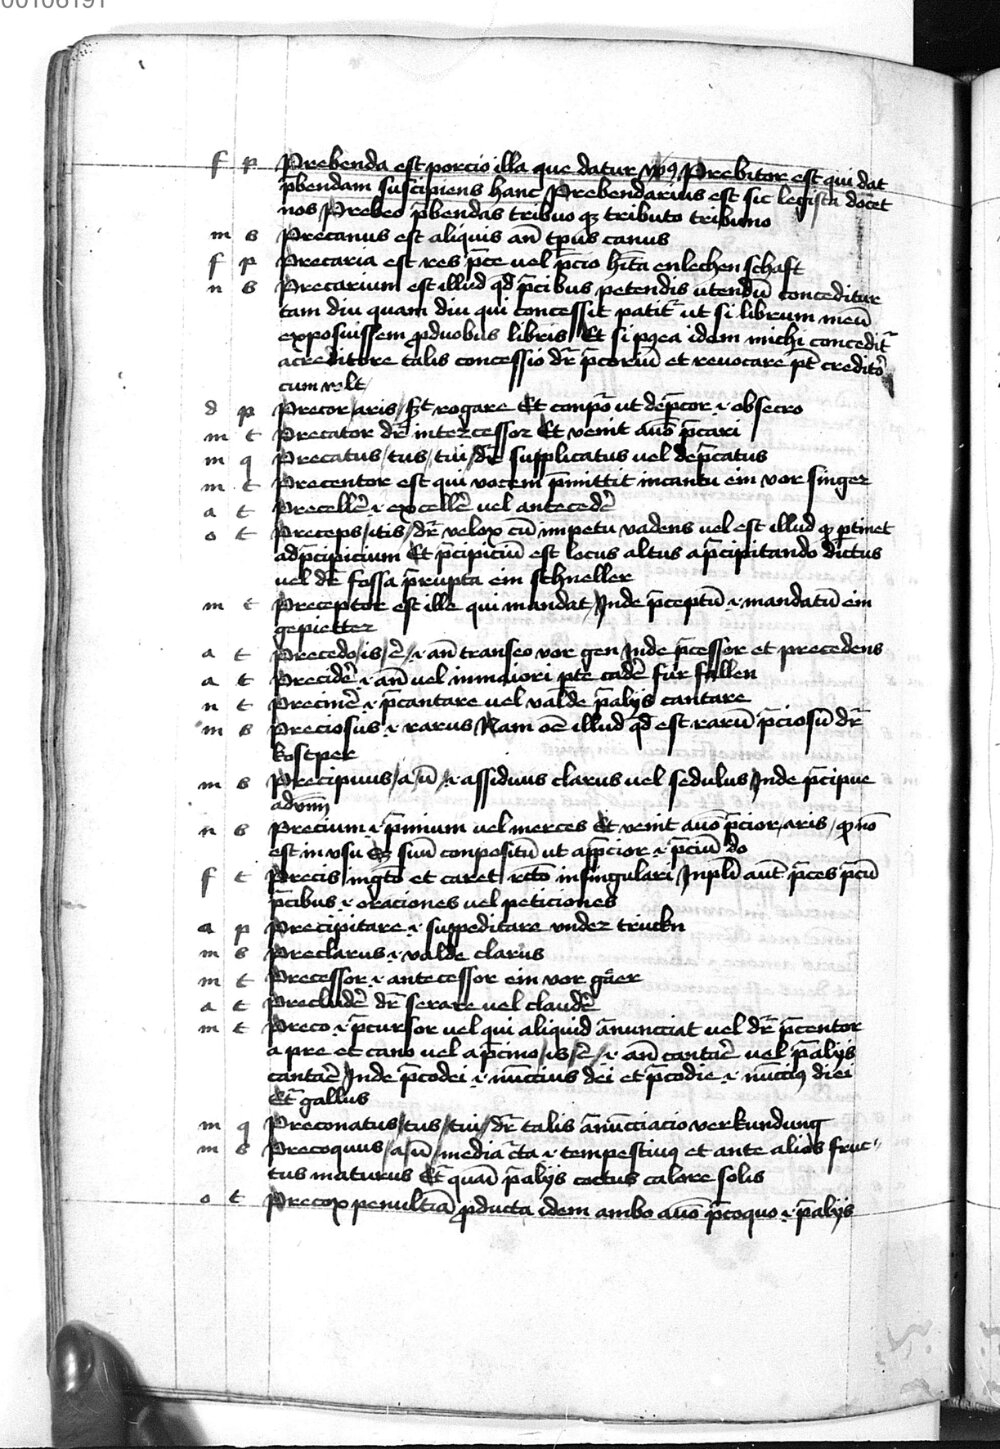 00106191
f p Prebenda est porcio illa que datur Prebitor est qui dat
p̄bendam suscipiens hanc Prebendarius est sic legista docet
nos Prebeo p̄bendas tribuo qꝫ tributo tribuno
m s Precanus est aliquis an̄ tp̄us canus
f p Precaria est res p̄ce vel p̄cio hīta enlechenschaft
n s Precarium est illud qd̄ p̄cibus petendis utendū conceditur
tam diu quam diu qui concessit patit᷑ ut si librum meū
exposuissem ꝓ duobus libris Et si postea idem michi concedit᷑
a creditore talis concessio dr̄ p̄coriū et revocare pt̄ creditor
cum volt
d p Precor/aris/ rogare Et conpo͞ ut dep̄cor .i. obsecro
m t Precator dr̄ intercessor Et venit a v͞o p̄cari
m q Precatus/tus/tui/dr̄ supplicatus vel dep̄catus
m t Precentor est qui vocem p̄mittit in cantu ein vor singer
a t Precellē .i. excellē vel antecedē
o t Preceps/itis/dr̄ velox cū impetu vadens vel est illud qꝫ ptinet
ad p̄cipicium Et p̄cipiciū est locus altus a p̄cipitando dictus
vel dr̄ fossa p̄rupta ein schneller
m t Preceptor est ille qui mandat/Inde p̄ceptū .i. mandatū ein
gepietter
a t Precedo/is/ē/.i. an̄ transeo vor gen Inde p̄cessor et precedens
a t Precidē .i. an̄ vel in maiori pte cadē fur fallen
n t Precinē .i. p̄cantare vel valde p̄ alijs cantare
m s Preciosus .i. rarus Nam oē illud qd̄ est rarū p̄ciosū dr̄
kostper
m s Precipuus/a/ū/.i. assiduus clarus vel sedulus Inde p̄cipue
n s Precium .i. p̄mium vel merces Et venit a v͞o p̄cior/aris/ no͞
est in usu sꝫ suū conpositū ut app̄cior .i. p̄ciū do
f t Precis in gto͞ et caret rcto͞ in singulari In pli᷑ aut̄ p̄ces p̄cū
p̄cibus .i. oraciones vel peticiones
a p Precipitare .i. suppeditare vnder truckn
m s Preclarus .i. valde clarus
m t Precessor .i. antecessor ein vor gäer
a t Precludē dr̄ serare vel claudē
m t Preco .i. p̄cursor vel qui aliquid annunciat vel dr̄ p̄centor
a pre et cano vel a p̄cino/is/ē/.i. an̄ cantāē vel p̄ alijs
cantāē Inde p̄co dei .i. nunccius dei et p̄co die .i. nuncciꝰ diei
Et᷑ gallus
m q Preconatus/tus/tui/dr̄ talis annunciacio verkundung
m s Precoquus/a/ū/media c̄ta .i. tempestiuꝰ et ante alios fruc-
tus maturus Et᷑ quam p̄ alijs coctus calore solis
o t Precox penultima ꝓducta idem ambo a v͞o p̄coquo .i. p̄ alijs